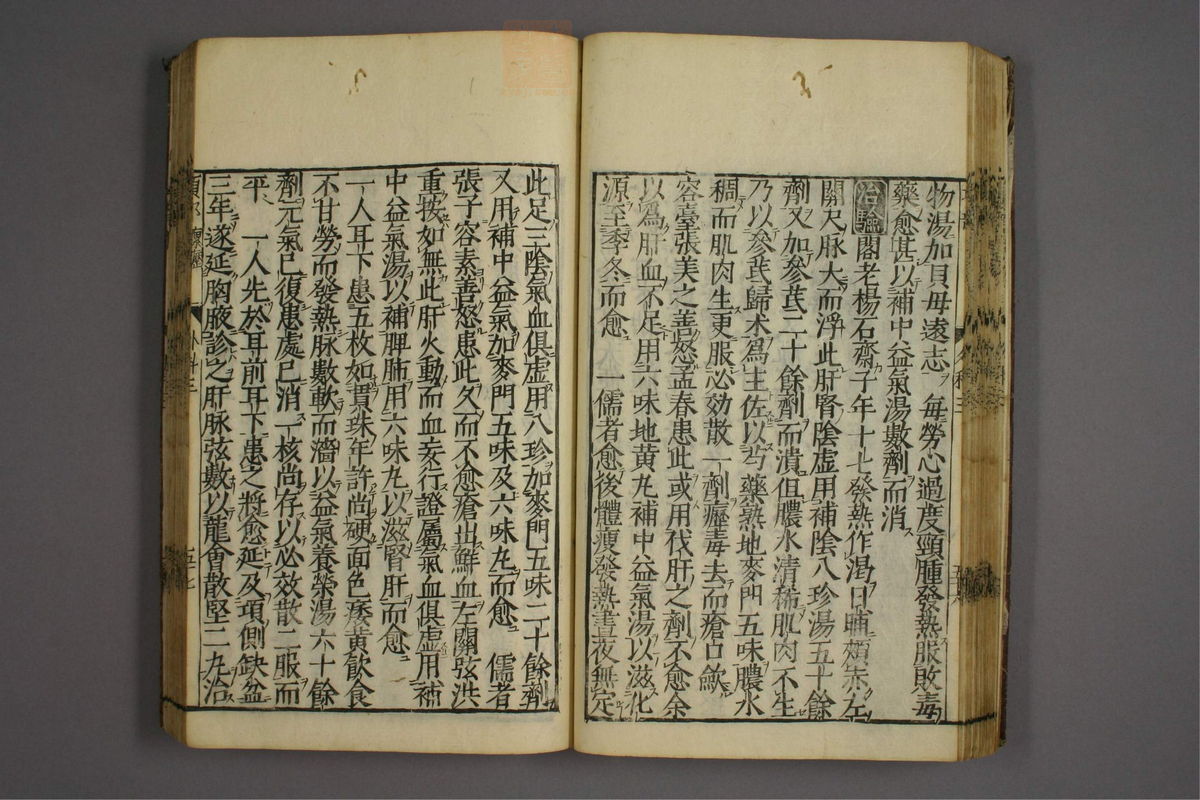 物湯加貝母遠志　毎勞心過度頸腫發熱服敗毒
藥愈甚以補中益氣湯數劑而消
治驗　閣老楊石齋子年十七發熱作渴日晡頰赤左
關尺脉大而浮此肝腎陰虚用補陰八珍湯五十餘
劑又加參芪二十餘劑而潰但膿水清稀肌肉不生
乃以參芪歸术爲主佐以芍藥熟地麥門五味膿水
稠而肌肉生更服必効散一劑癧毒去而瘡口歛
容臺張美之善怒孟春患此或用伐肝之劑不愈余
以爲肝血不足用六味地黄丸補中益氣湯以滋化
源至季冬而愈　一儒者愈後體瘦發熱晝夜無定
此足三陰氣血俱虚用八珍加麥門五味二十餘劑
又用補中益氣加麥門五味及六味丸而愈　儒者
張子容素善怒患此久而不愈瘡出鮮血左關弦洪
重按如無此肝火動而血妄行證屬氣血俱虚用補
中益氣湯以補脾肺用六味丸以滋腎肝而愈
一人耳下患五枚如貫珠年許尚硬面色痿黄飲食
不甘勞而發熱脉數軟而濇以益氣養榮湯六十餘
劑元氣已復患處已消一核尚存以必效散二服而
平　一人先於耳前耳下患之將愈延及項側缺盆
三年遂延胸腋診之肝脉弦數以龍會散堅二丸治
外科三
五十七